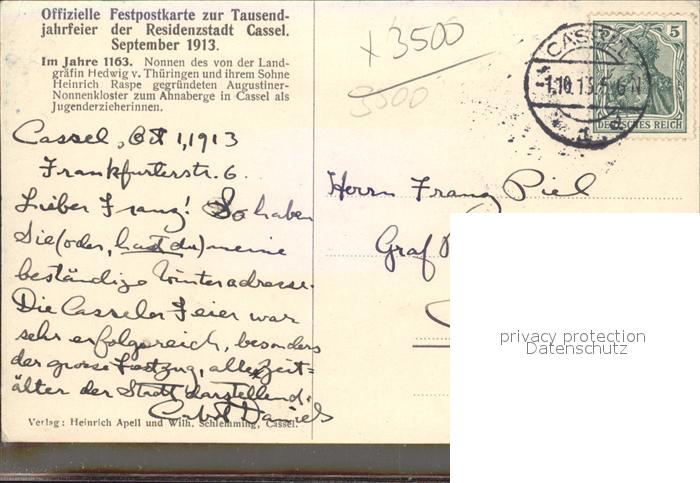 Offizielle Festpostkarte zur Tausend-
jahrfeier der Residenzstadt Cassel.
September 1913.
Im Jahre 1163. Nonnen des von der Land-
gräfin Hedwig v. Thüringen und ihrem Sohne
Heinrich Raspe gegründeten Augustiner-
Nonnenkloster zum Ahnaberge in Cassel als
Jugenderzieherinnen.
x 3500
3500
CASSEL
1.10.13. 5-6 N
5
DEUTSCHES REICH
Cassel, Oct 1, 1913
Frankfurterstr. 6.
Lieber Franz! So haben
Sie (oder, hast du) meine
beständige Winteradresse.
Die Casseler Feier war
sehr erfolgreich, besonders
der grosse Festzug, alle Zeit=
älter der Stadt darstellend.
Daniels
Herrn Franz Piel
Graf
privacy protection
Datenschutz
Verlag: Heinrich Apell und Wilh. Schlemming, Cassel.